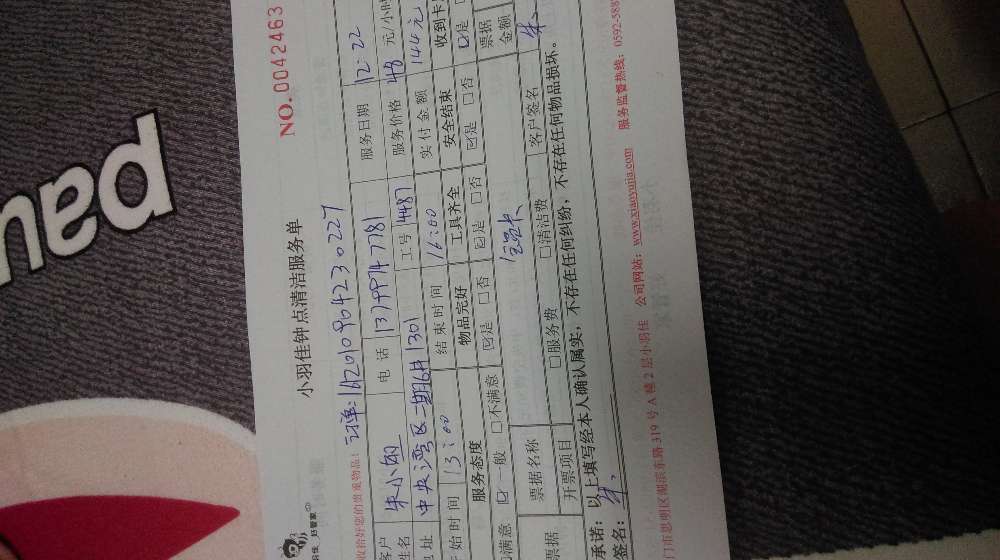 NO.0042463
小羽佳钟点清洁服务单
收拾好您的贵重物品!
订单:
客户姓名 电话 服务日期 12.22
地址 中央湾区二期 1301 工号 1487 服务价格 48 元/小时
开始时间 13:00 结束时间 16:00 实付金额 144元
服务态度 物品完好 工具齐全 安全结束 收到卡
满意 ☑一般 □不满意 ☑是 □否 ☑是 □否 ☑是 □否 ☑是
票据名称 票据金额
票据 开票项目 □服务费 □清洁费 客户签名 朱
承诺:以上填写经本人确认属实,不存在任何纠纷,不存在任何物品损坏。
签名: 朱
门市思明区湖滨东路319号A幢2层小羽佳 公司网站:www.xiaoyujia.com 服务监督热线:0592-588
pau